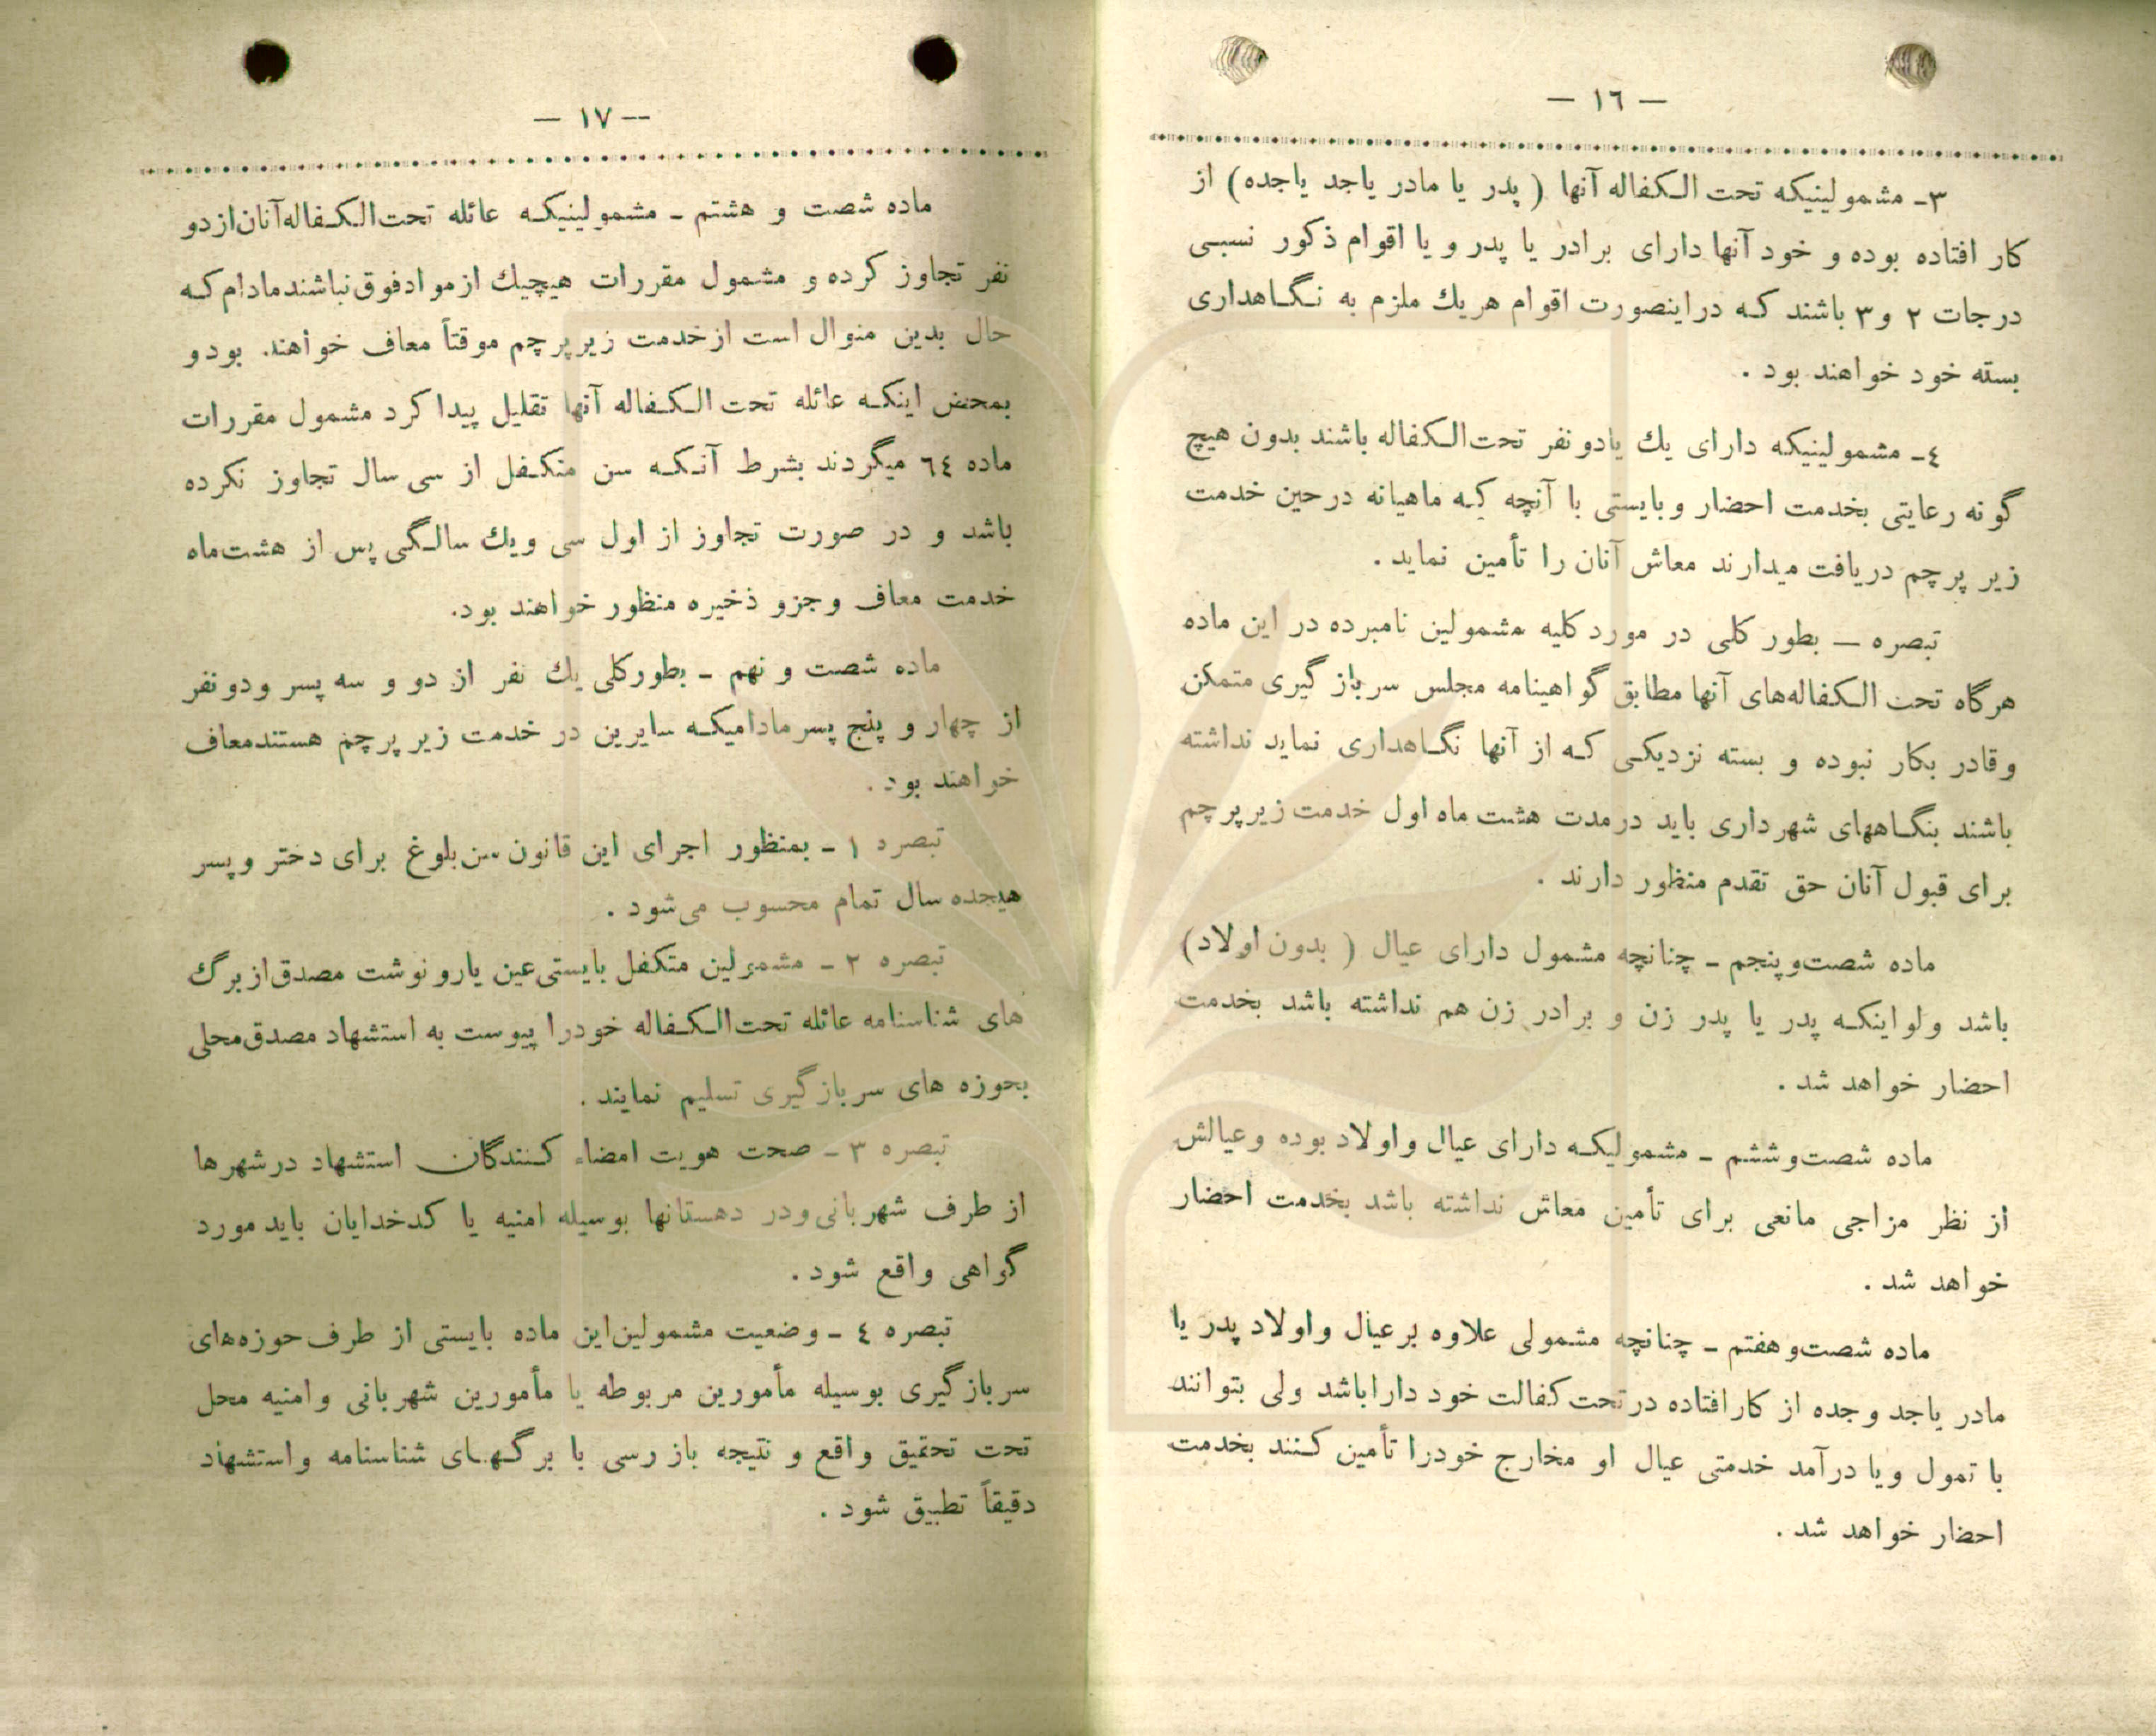 — ١٦ —
٣ـ مشمولینیکه تحت الکفاله آنها ( پدر یا مادر یاجد یاجده) از
کار افتاده بوده و خود آنها دارای برادر یا پدر و یا اقوام ذکور نسبی
درجات ٢ و ٣ باشند که دراینصورت اقوام هریك ملزم به نگاهداری
بسته خود خواهند بود .
٤ـ مشمولینیکه دارای یك یادو نفر تحت‌الکفاله باشند بدون هیچ
گونه رعایتی بخدمت احضار وبایستی با آنچه که ماهیانه درحین خدمت
زیر پرچم دریافت میدارند معاش آنان را تأمین نماید .
تبصره — بطور کلی در مورد کلیه مشمولین نامبرده در این ماده
هرگاه تحت الکفاله‌های آنها مطابق گواهینامه مجلس سربازگیری متمکن
وقادر بکار نبوده و بسته نزدیکی که از آنها نگاهداری نماید نداشته
باشند بنگاههای شهرداری باید درمدت هشت ماه اول خدمت زیرپرچم
برای قبول آنان حق تقدم منظور دارند .
ماده شصت‌و‌پنجم ـ چنانچه مشمول دارای عیال ( بدون اولاد)
باشد ولواینکه پدر یا پدر زن و برادر زن هم نداشته باشد بخدمت
احضار خواهد شد .
ماده شصت‌و‌ششم ـ مشمولیکه دارای عیال واولاد بوده وعیالش
از نظر مزاجی مانعی برای تأمین معاش نداشته باشد بخدمت احضار
خواهد شد .
ماده شصت‌و‌هفتم ـ چنانچه مشمولی علاوه برعیال واولاد پدر یا
مادر یاجد وجده از کارافتاده درتحت کفالت خود داراباشد ولی بتوانند
با تمول ویا درآمد خدمتی عیال او مخارج خودرا تأمین کنند بخدمت
احضار خواهد شد .
— ١٧ —
ماده شصت و هشتم ـ مشمولینیکه عائله تحت‌الکفاله‌آنان‌ازدو
نفر تجاوز کرده و مشمول مقررات هیچیك ازموادفوق‌نباشندمادام‌که
حال بدین منوال است ازخدمت زیرپرچم موقتاً معاف خواهند. بودو
بمحض اینکه عائله تحت الکفاله آنها تقلیل پیدا کرد مشمول مقررات
ماده ٦٤ میگردند بشرط آنکه سن متکفل از سی سال تجاوز نکرده
باشد و در صورت تجاوز از اول سی ویك سالگی پس از هشت‌ماه
خدمت معاف وجزو ذخیره منظور خواهند بود.
ماده شصت و نهم ـ بطورکلی یك نفر از دو و سه پسر ودونفر
از چهار و پنج پسرمادامیکه سایرین در خدمت زیر پرچم هستندمعاف
خواهند بود .
تبصره ١ ـ بمنظور اجرای این قانون سن‌بلوغ برای دختر وپسر
هیجده سال تمام محسوب می‌شود .
تبصره ٢ ـ مشمولین متکفل بایستی‌عین یارونوشت مصدق‌ازبرگ
های شناسنامه عائله تحت‌الکفاله خودرا پیوست به استشهاد مصدق‌محلی
بحوزه های سربازگیری تسلیم نمایند .
تبصره ٣ ـ صحت هویت امضاء کنندگان استشهاد درشهرها
از طرف شهربانی‌ودر دهستانها بوسیله امنیه یا کدخدایان باید مورد
گواهی واقع شود .
تبصره ٤ ـ وضعیت مشمولین‌این ماده بایستی از طرف حوزه‌های
سربازگیری بوسیله مأمورین مربوطه یا مأمورین شهربانی وامنیه محل
تحت تحقیق واقع و نتیجه بازرسی با برگهای شناسنامه واستشهاد
دقیقاً تطبیق شود .